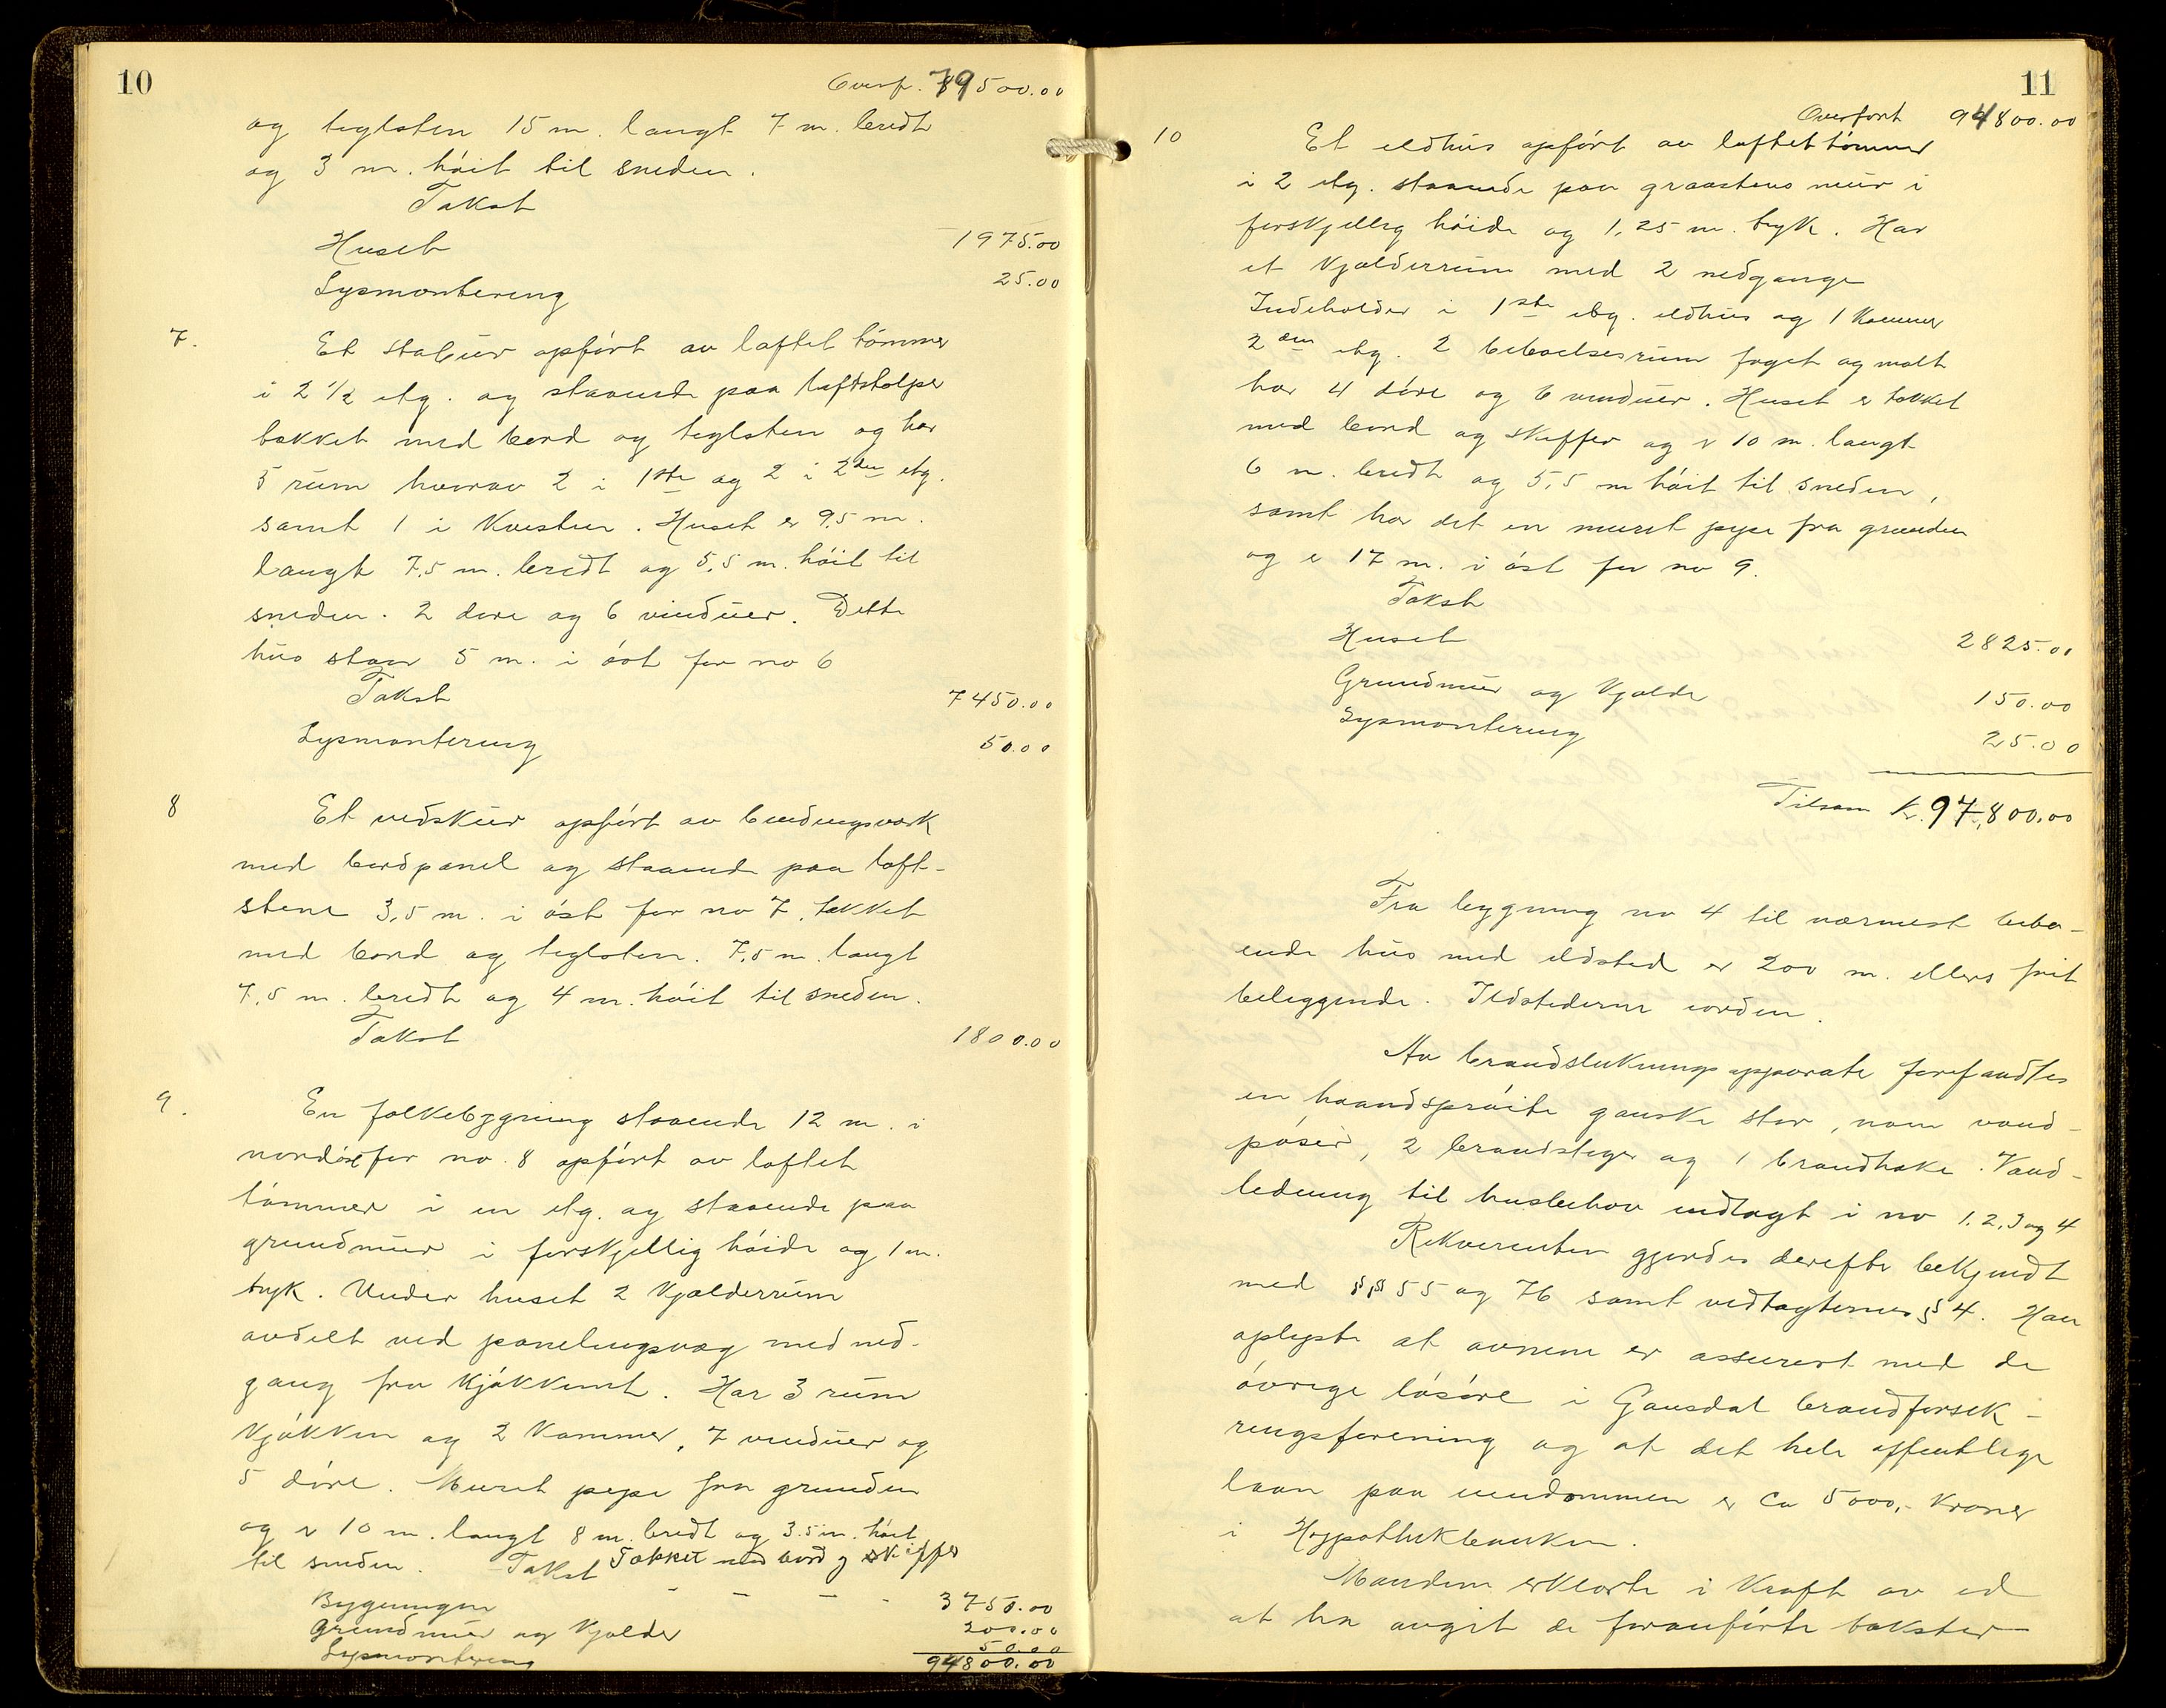 10
Overf. 79500.00
og teglsten 15 m. langt 7 m. bredt
og 3 m. höit til sneden.
Takst
Huset 1975.00
Lysmontering 25.00
7. Et stabur opfört av laftet tömmer
i 2 1/2 etg. og staaende paa loftstolper
takket med bord og teglsten og har
5 rum hvorav 2 i 1ste og 2 i 2den etg.
samt 1 i Kvisten. Huset er 9,5 m.
langt 7,5 m. bredt og 5,5 m. höit til
sneden. 2 döre og 6 vinduer. Dette
hus staar 5 m. i öst for no 6
Takst 7450.00
Lysmontering 50.00
8 Et vedskur opfört av bindingsverk
med bordpanel og staaende paa loft-
stene 3,5 m. i öst for no 7, takket
med bord og teglsten. 7,5 m. langt
7,5 m. bredt og 4 m. höit til sneden.
Takst 1800.00
9. En folkebygning staaende 12 m. i
nordöst for no. 8 opfört av laftet
tömmer i en etg. og staaende paa
grundmur i forskjellig höide og 1 m.
tyk. Under huset 2 Kjælderrum
avdelt ved panelingsvæg med ned-
gang fra Kjökkenet. Har 3 rum
Kjökken og 2 Kammer, 7 vinduer og
5 döre. Muret pipe fra grunden
og er 10 m. langt 8 m. bredt og 3.5 m. höit
til sneden. Takst Takket med bord og skiffer
Bygningen - - - - 3750.00
Grundmur og Kjælder 200.00
Lysmontering 50.00
94800.00
11
Overfört 94800.00
10 Et eldhus opfört av laftet tömmer
i 2 etg. staaende paa graastens mur i
forskjellig höide og 1,25 m. tyk. Har
et Kjælderrum med 2 nedgange
Indeholder i 1ste etg. eldhus og 1 Kammer
2den etg. 2 beboelsesrum foget og malt
har 4 döre og 6 vinduer. Huset er takket
med bord og skiffer og er 10 m. langt
6 m. bredt og 5,5 m höit til sneden,
samt har det en muret pipe fra grunden
og er 17 m. i öst for no 9.
Takst
Huset 2825.00
Grundmur og Kjælder 150.00
Lysmontering 25.00
Tilsam Kr. 97,800.00
Fra bygning no 4 til nærmest bebo-
ende hus med ildsted er 200 m. ellers frit
beliggende. Ildstederne iorden.
Av brandslukningsapparater forefandtes
en haandspröite ganske stor, noen vand-
pöser, 2 brandstiger og 1 brandhake. Vand-
ledning til husbehov indlagt i no 1, 2, 3 og 4
Rekvirenten gjordes derefter bekjendt
med §§ 55 og 76 samt vedtagternes § 4. Han
oplyste at avnem er assurert med de
övrige lösöre i Gausdal brandforsik-
ringsforening og at det hele offentlige
laan paa eiendommen er ca 5000,- kroner
i Hypothekbanken.
Mændene erklærte i Kraft av ed
at ha avgit de foranförte takster